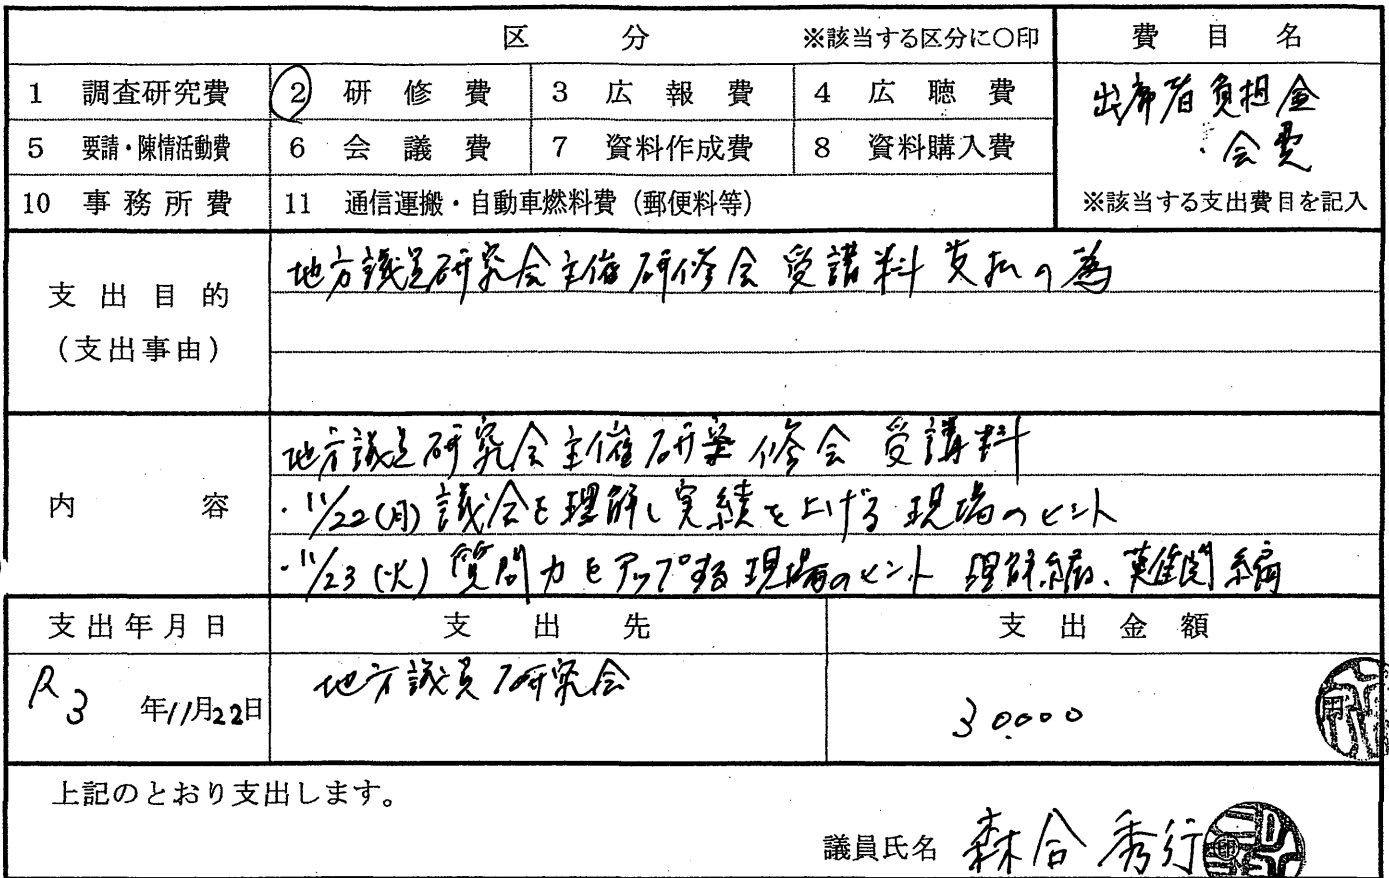 区 分 ※該当する区分に○印 費目名
1 調査研究費 ② 研修費 3 広報費 4 広聴費 出席者負担金
5 要請・陳情活動費 6 会議費 7 資料作成費 8 資料購入費 ・会費
10 事務所費 11 通信運搬・自動車燃料費（郵便料等） ※該当する支出費目を記入
支出目的 地方議員研究会主催研修会 受講料 支払の為
（支出事由）
地方議員研究会主催研修会 受講料
内容 ・11/22（月）議会を理解し実績を上げる現場のヒント
・11/23（火）質問力をアップする現場のヒント 理解編、難関編
支出年月日 支出先 支出金額
R3年11月22日 地方議員研究会 30000
上記のとおり支出します。
議員氏名 森合秀行